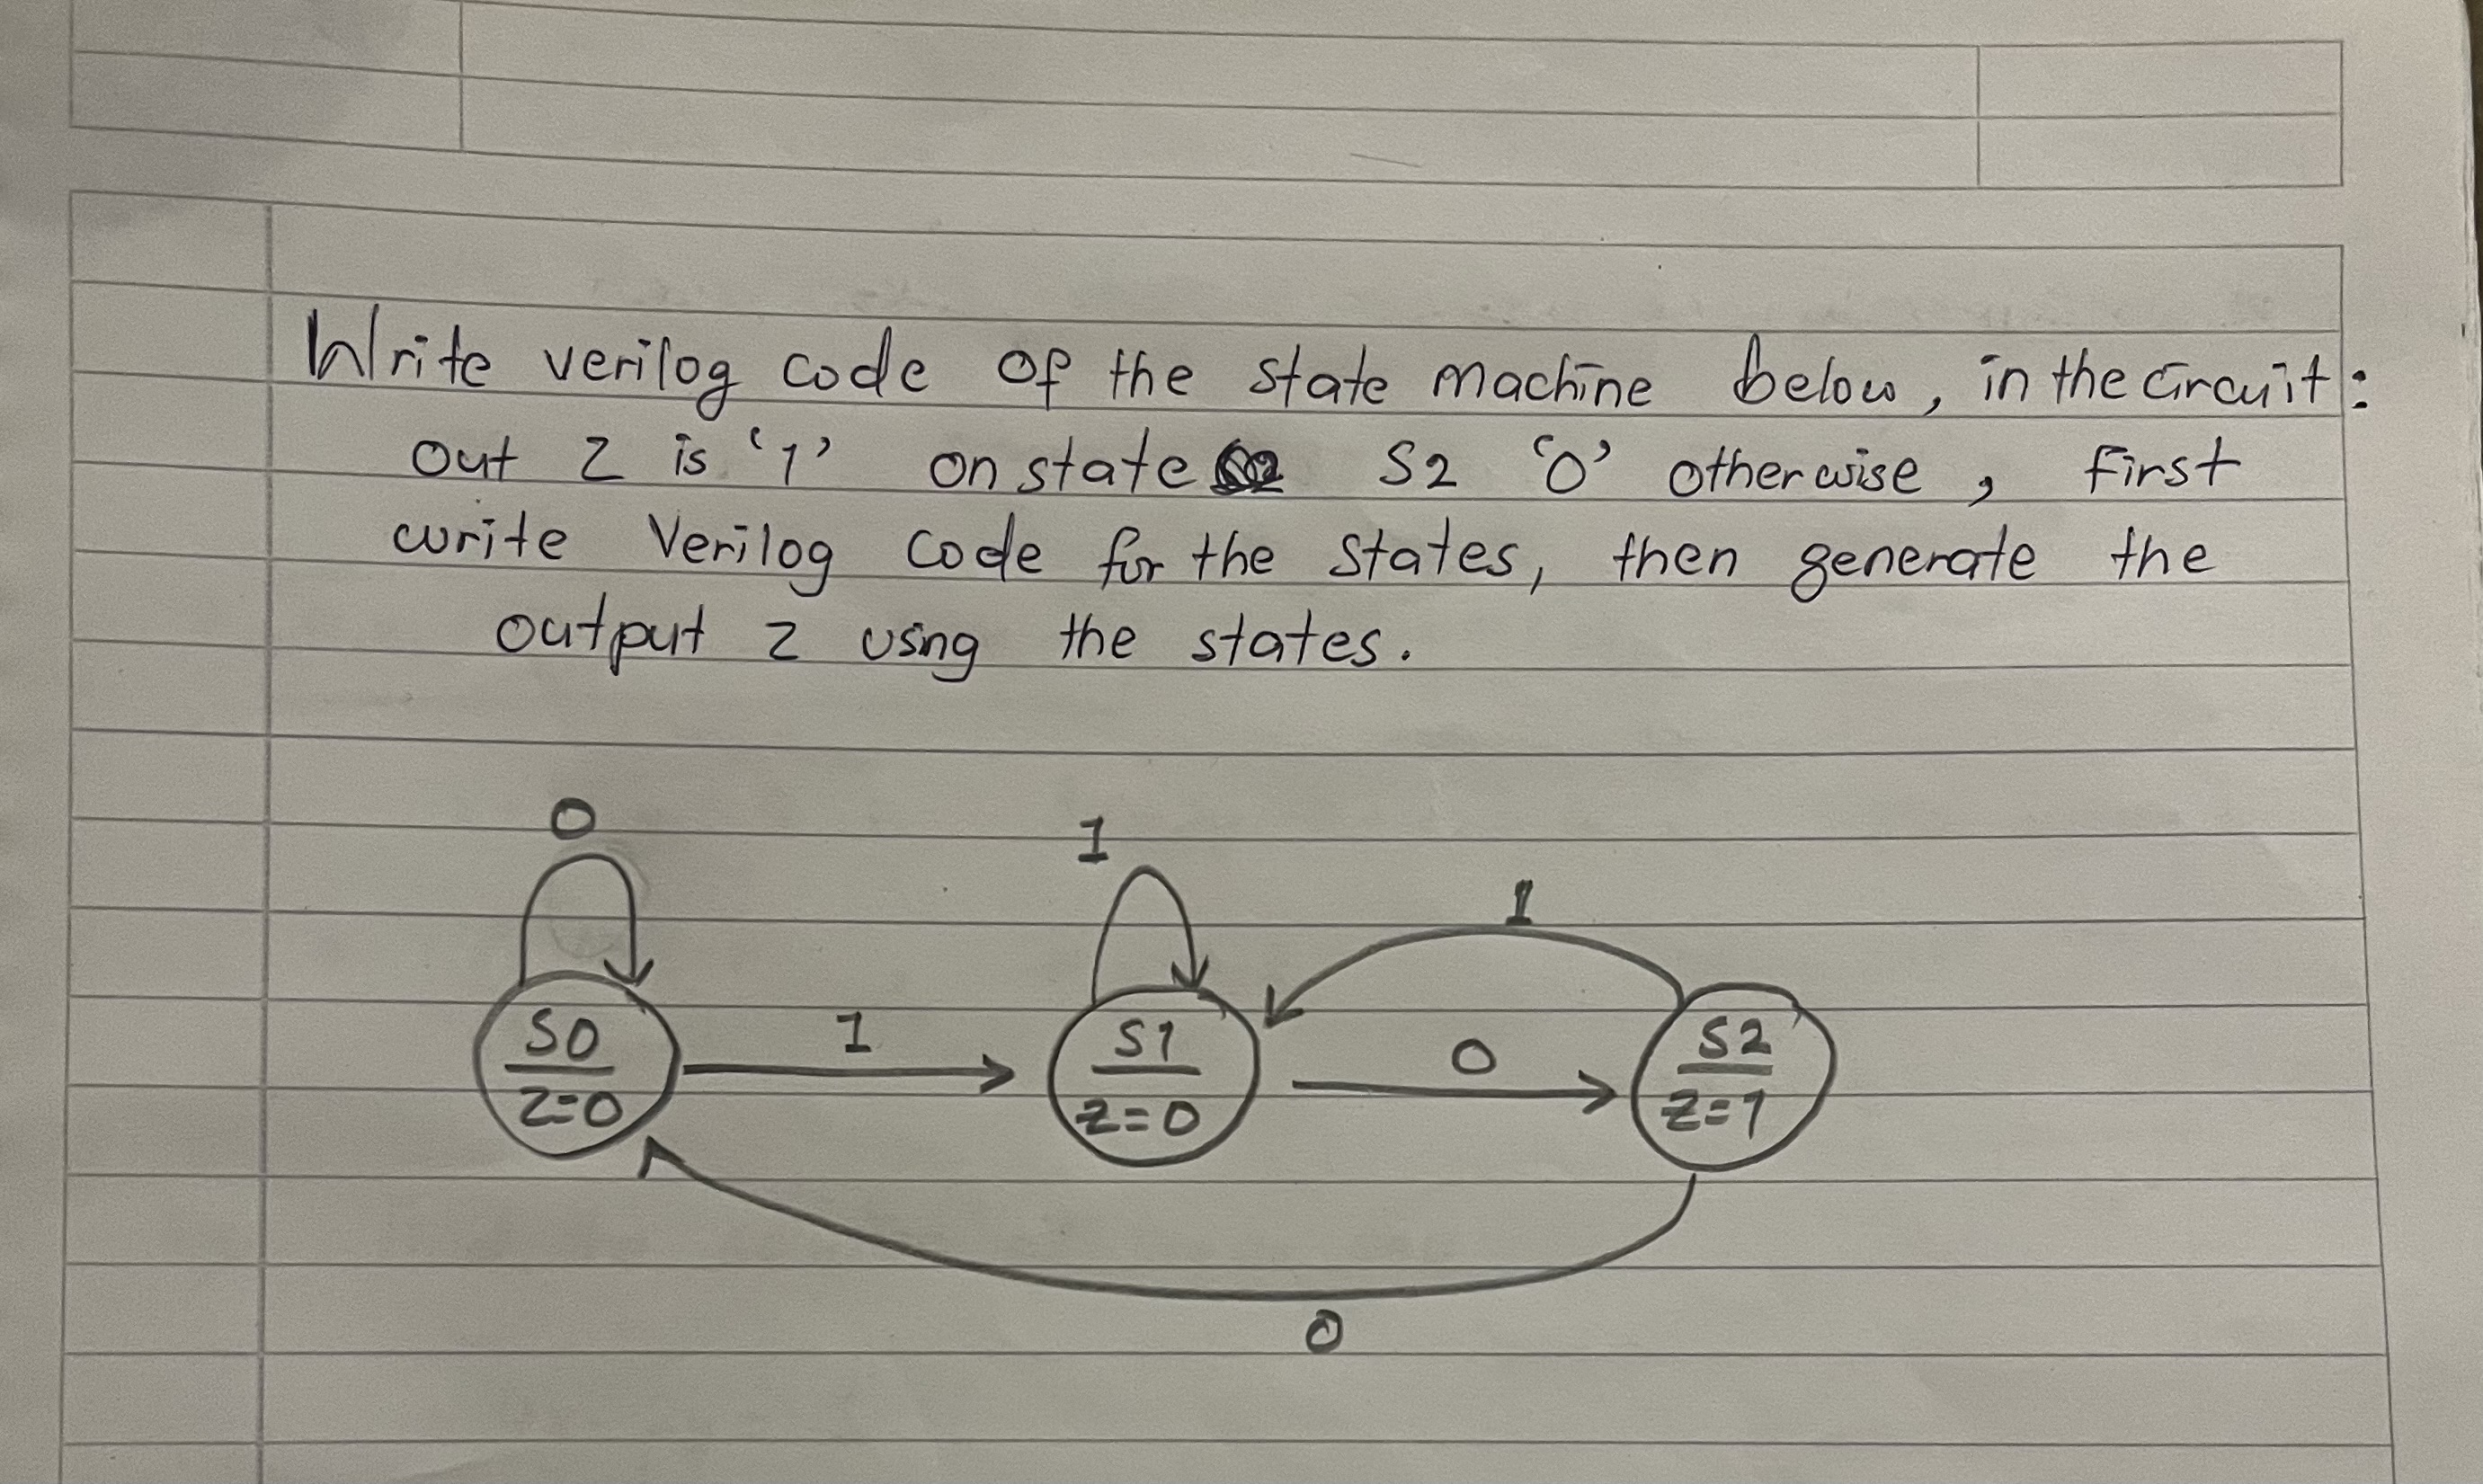 Write verilog code of the state machine below, in the circuit:
out z is '1' on state S2 '0' otherwise, first
write Verilog code for the states, then generate the
output z using the states.
0
1
1
S0
1
S1
0
S2
z=0
z=0
z=1
0